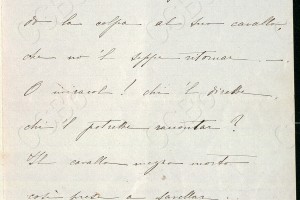 dà la colpa al suo cavallo,
che no 'l seppe ritornar ....
O miracol! chi 'l direbbe,
chi 'l potrebbe raccontar?
Il cavallo megro morto
così prese a parlar: